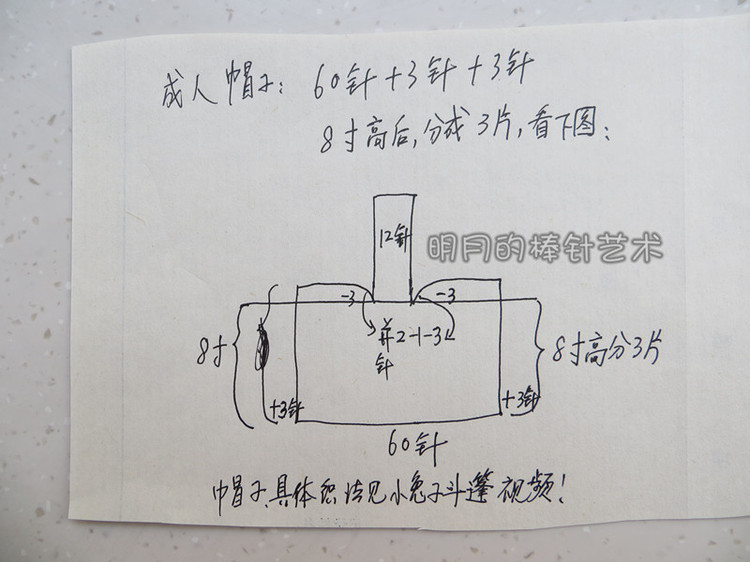 成人帽子：60针+3针+3针
8寸高后，分成3片，看下图：
12针
明月的棒针艺术
-3
-3
并2-1-3
针
8寸
8寸高分3片
+3针
+3针
60针
帽子具体织法见小兔子斗篷视频！